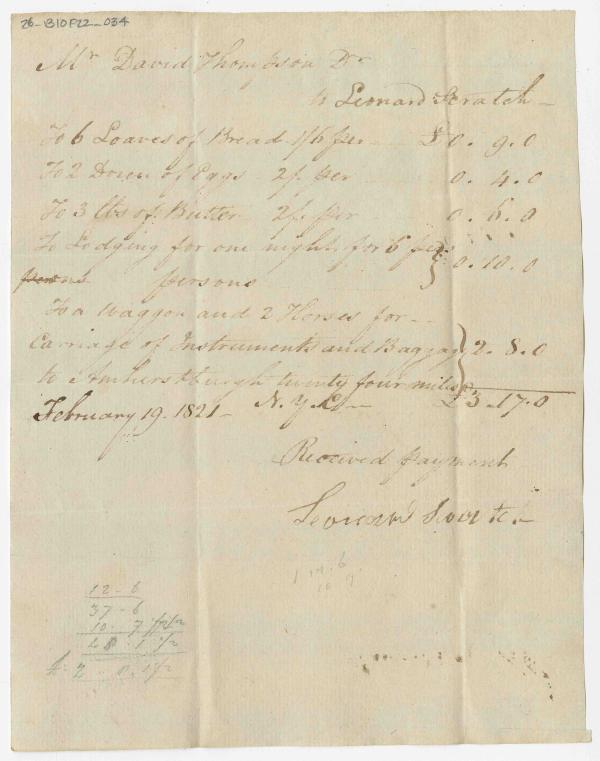 26-B10F22-034
Mr David Thompson Dr
to Leonard Scratch -
To 6 Loaves of Bread 1/6 per £ 0. 9. 0
To 2 Dozen of Eggs 2/. per 0. 4. 0
To 3 lbs of Butter 2/. per 0. 6. 0
To Lodging for one night for 6 pers
persons persons } 0. 10. 0
To a waggon and 2 Horses for --
Carriage of Instruments and Baggage } 2. 8. 0
to Amherstburgh twenty four miles
February 19. 1821 - N. Y. Cy £ 3. 17. 0
Received payment
Leonard Scratch
12 - 6
37 - 6
10 - 7
48 . 1 1/2
£ 2 . 8. 1 1/2